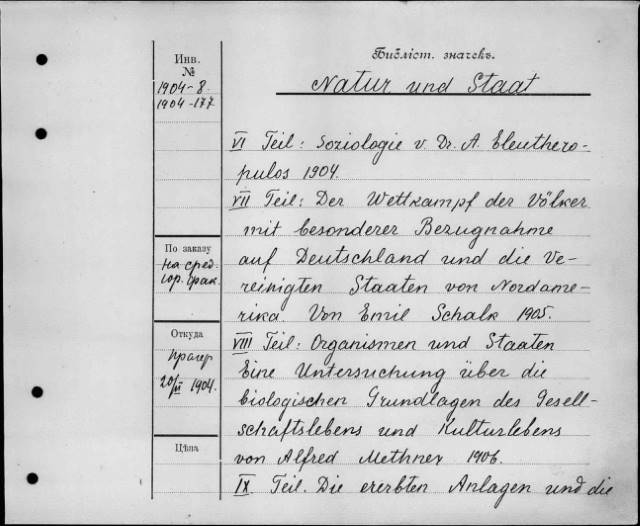 Инв.
№
1904-8.
1904-177
Библіот. значекъ.
Natur und Staat
VI Teil: Soziologie v. Dr. A. Eleuthero-
pulos 1904.
VII Teil: Der Wettkampf der Völker
mit besonderer Bezugnahme
auf Deutschland und die Ve-
reinigten Staaten von Nordame-
rika. Von Emil Schalk 1905.
VIII Teil: Organismen und Staaten
Eine Untersuchung über die
biologischen Grundlagen des Gesell-
schaftslebens und Kulturlebens
von Alfred Methner 1906.
IX. Teil. Die ererbten Anlagen und die
По заказу
на сред.
юр. фак.
Откуда
Прагер
20/II 1904.
Цѣна